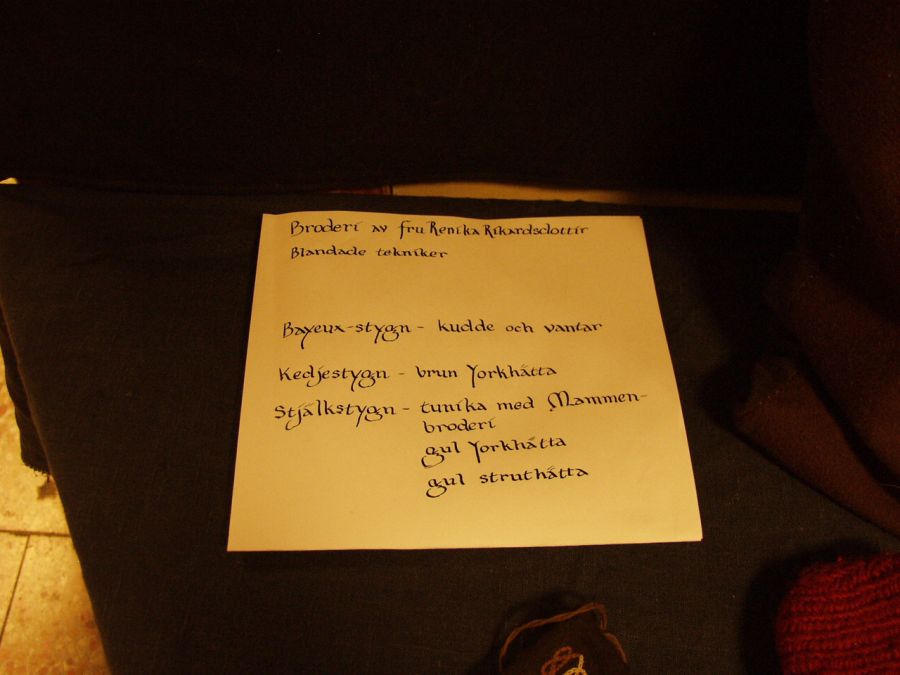 Broderi av fru Renika Rikardsdottir
Blandade tekniker
Bayeux-stygn - kudde och vantar
Kedjestygn - brun Yorkhätta
Stjälkstygn - tunika med Mammen-
broderi
gul Yorkhätta
gul struthätta